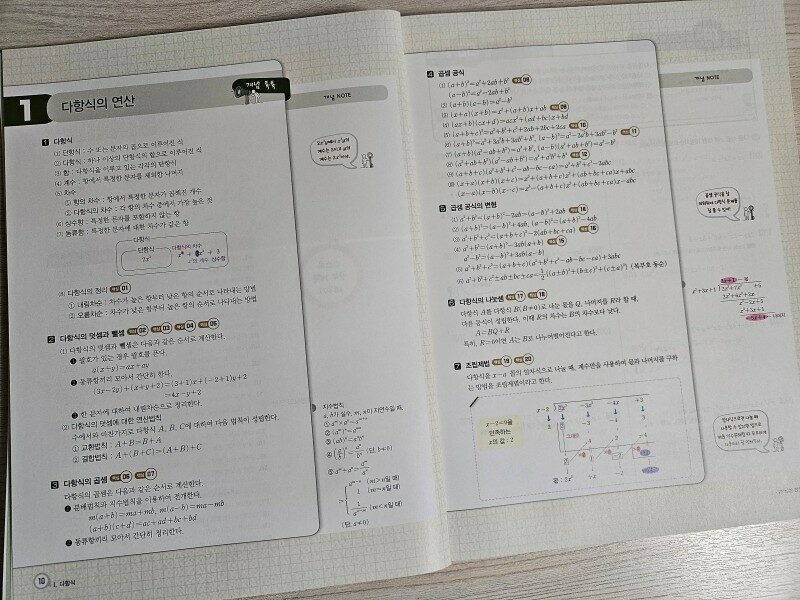 개념 톡톡
1 다항식의 연산
개념 NOTE
1 다항식
(1) 단항식 : 수 또는 문자의 곱으로 이루어진 식
(2) 다항식 : 하나 이상의 단항식의 합으로 이루어진 식
(3) 항 : 다항식을 이루고 있는 각각의 단항식
(4) 계수 : 항에서 특정한 문자를 제외한 나머지
(5) 차수
① 항의 차수 : 항에서 특정한 문자가 곱해진 개수
② 다항식의 차수 : 각 항의 차수 중에서 가장 높은 것
(6) 상수항 : 특정한 문자를 포함하지 않는 항
(7) 동류항 : 특정한 문자에 대한 차수가 같은 항
다항식
단항식 다항식의 차수
상수항
(8) 다항식의 정리 01
① 내림차순 : 차수가 높은 항부터 낮은 항의 순서로 나타내는 방법
② 오름차순 : 차수가 낮은 항부터 높은 항의 순서로 나타내는 방법
2 다항식의 덧셈과 뺄셈 02 03 04 05
(1) 다항식의 덧셈과 뺄셈은 다음과 같은 순서로 계산한다.
❶ 괄호가 있는 경우 괄호를 푼다.
a(x+y)=ax+ay
❷ 동류항끼리 모아서 간단히 한다.
(3x-2y)+(x+y+2)=(3+1)x+(-2+1)y+2
=4x-y+2
❸ 한 문자에 대하여 내림차순으로 정리한다.
(2) 다항식의 덧셈에 대한 연산법칙
수에서와 마찬가지로 다항식 A, B, C에 대하여 다음 법칙이 성립한다.
① 교환법칙 : A+B=B+A
② 결합법칙 : A+(B+C)=(A+B)+C
3 다항식의 곱셈 06 07
다항식의 곱셈은 다음과 같은 순서로 계산한다.
❶ 분배법칙과 지수법칙을 이용하여 전개한다.
m(a+b)=ma+mb, m(a-b)=ma-mb
(a+b)(c+d)=ac+ad+bc+bd
❷ 동류항끼리 모아서 간단히 정리한다.
지수법칙
a, b가 실수, m, n이 자연수일 때,
① aᵐ×aⁿ=aᵐ⁺ⁿ
② (aᵐ)ⁿ=aᵐⁿ
③ (ab)ⁿ=aⁿbⁿ
(단, b≠0)
(m>n일 때)
1 (m=n일 때)
(m<n일 때)
(단, a≠0)
10 I. 다항식
개념 NOTE
4 곱셈 공식
(1) (a+b)²=a²+2ab+b² 08
(a-b)²=a²-2ab+b²
(2) (a+b)(a-b)=a²-b²
(3) (x+a)(x+b)=x²+(a+b)x+ab 09
(4) (ax+b)(cx+d)=acx²+(ad+bc)x+bd
(5) (a+b+c)²=a²+b²+c²+2ab+2bc+2ca 10
(6) (a+b)³=a³+3a²b+3ab²+b³, (a-b)³=a³-3a²b+3ab²-b³ 11
(7) (a+b)(a²-ab+b²)=a³+b³, (a-b)(a²+ab+b²)=a³-b³
(8) (a²+ab+b²)(a²-ab+b²)=a⁴+a²b²+b⁴ 12
(9) (a+b+c)(a²+b²+c²-ab-bc-ca)=a³+b³+c³-3abc
(10) (x+a)(x+b)(x+c)=x³+(a+b+c)x²+(ab+bc+ca)x+abc
(x-a)(x-b)(x-c)=x³-(a+b+c)x²+(ab+bc+ca)x-abc
5 곱셈 공식의 변형
(1) a²+b²=(a+b)²-2ab=(a-b)²+2ab
(2) (a+b)²=(a-b)²+4ab, (a-b)²=(a+b)²-4ab
(3) a²+b²+c²=(a+b+c)²-2(ab+bc+ca)
(4) a³+b³=(a+b)³-3ab(a+b) 15
a³-b³=(a-b)³+3ab(a-b)
(5) a³+b³+c³=(a+b+c)(a²+b²+c²-ab-bc-ca)+3abc
(6) a²+b²+c²±ab±bc±ca=½{(a±b)²+(b±c)²+(c±a)²} (복부호 동순)
6 다항식의 나눗셈 17 18
다항식 A를 다항식 B(B≠0)로 나눈 몫을 Q, 나머지를 R라 할 때,
다음 등식이 성립한다. 이때 R의 차수는 B의 차수보다 낮다.
A=BQ+R
특히, R=0이면 A는 B로 나누어떨어진다고 한다.
7 조립제법 19 20
다항식을 x-a 꼴의 일차식으로 나눌 때, 계수만을 사용하여 몫과 나머지를 구하
는 방법을 조립제법이라고 한다.
x-2=0을
만족하는
x의 값 : 2